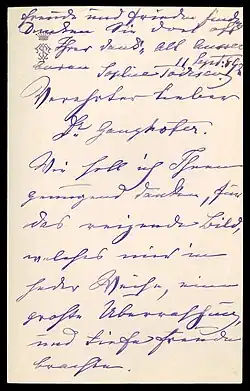 Freude und Frieden finden
Denken Sie dort oft
Ihrer dankb. alt
11 Sept. 89
Sophie Todesco
Verehrter lieber
Dr. Ganghofer.
Wie soll ich Ihnen
genügend danken, für
das reizende Bild,
welches mir in
jeder Weise, eine
große Überraschung,
und tiefe Freude
brachte.